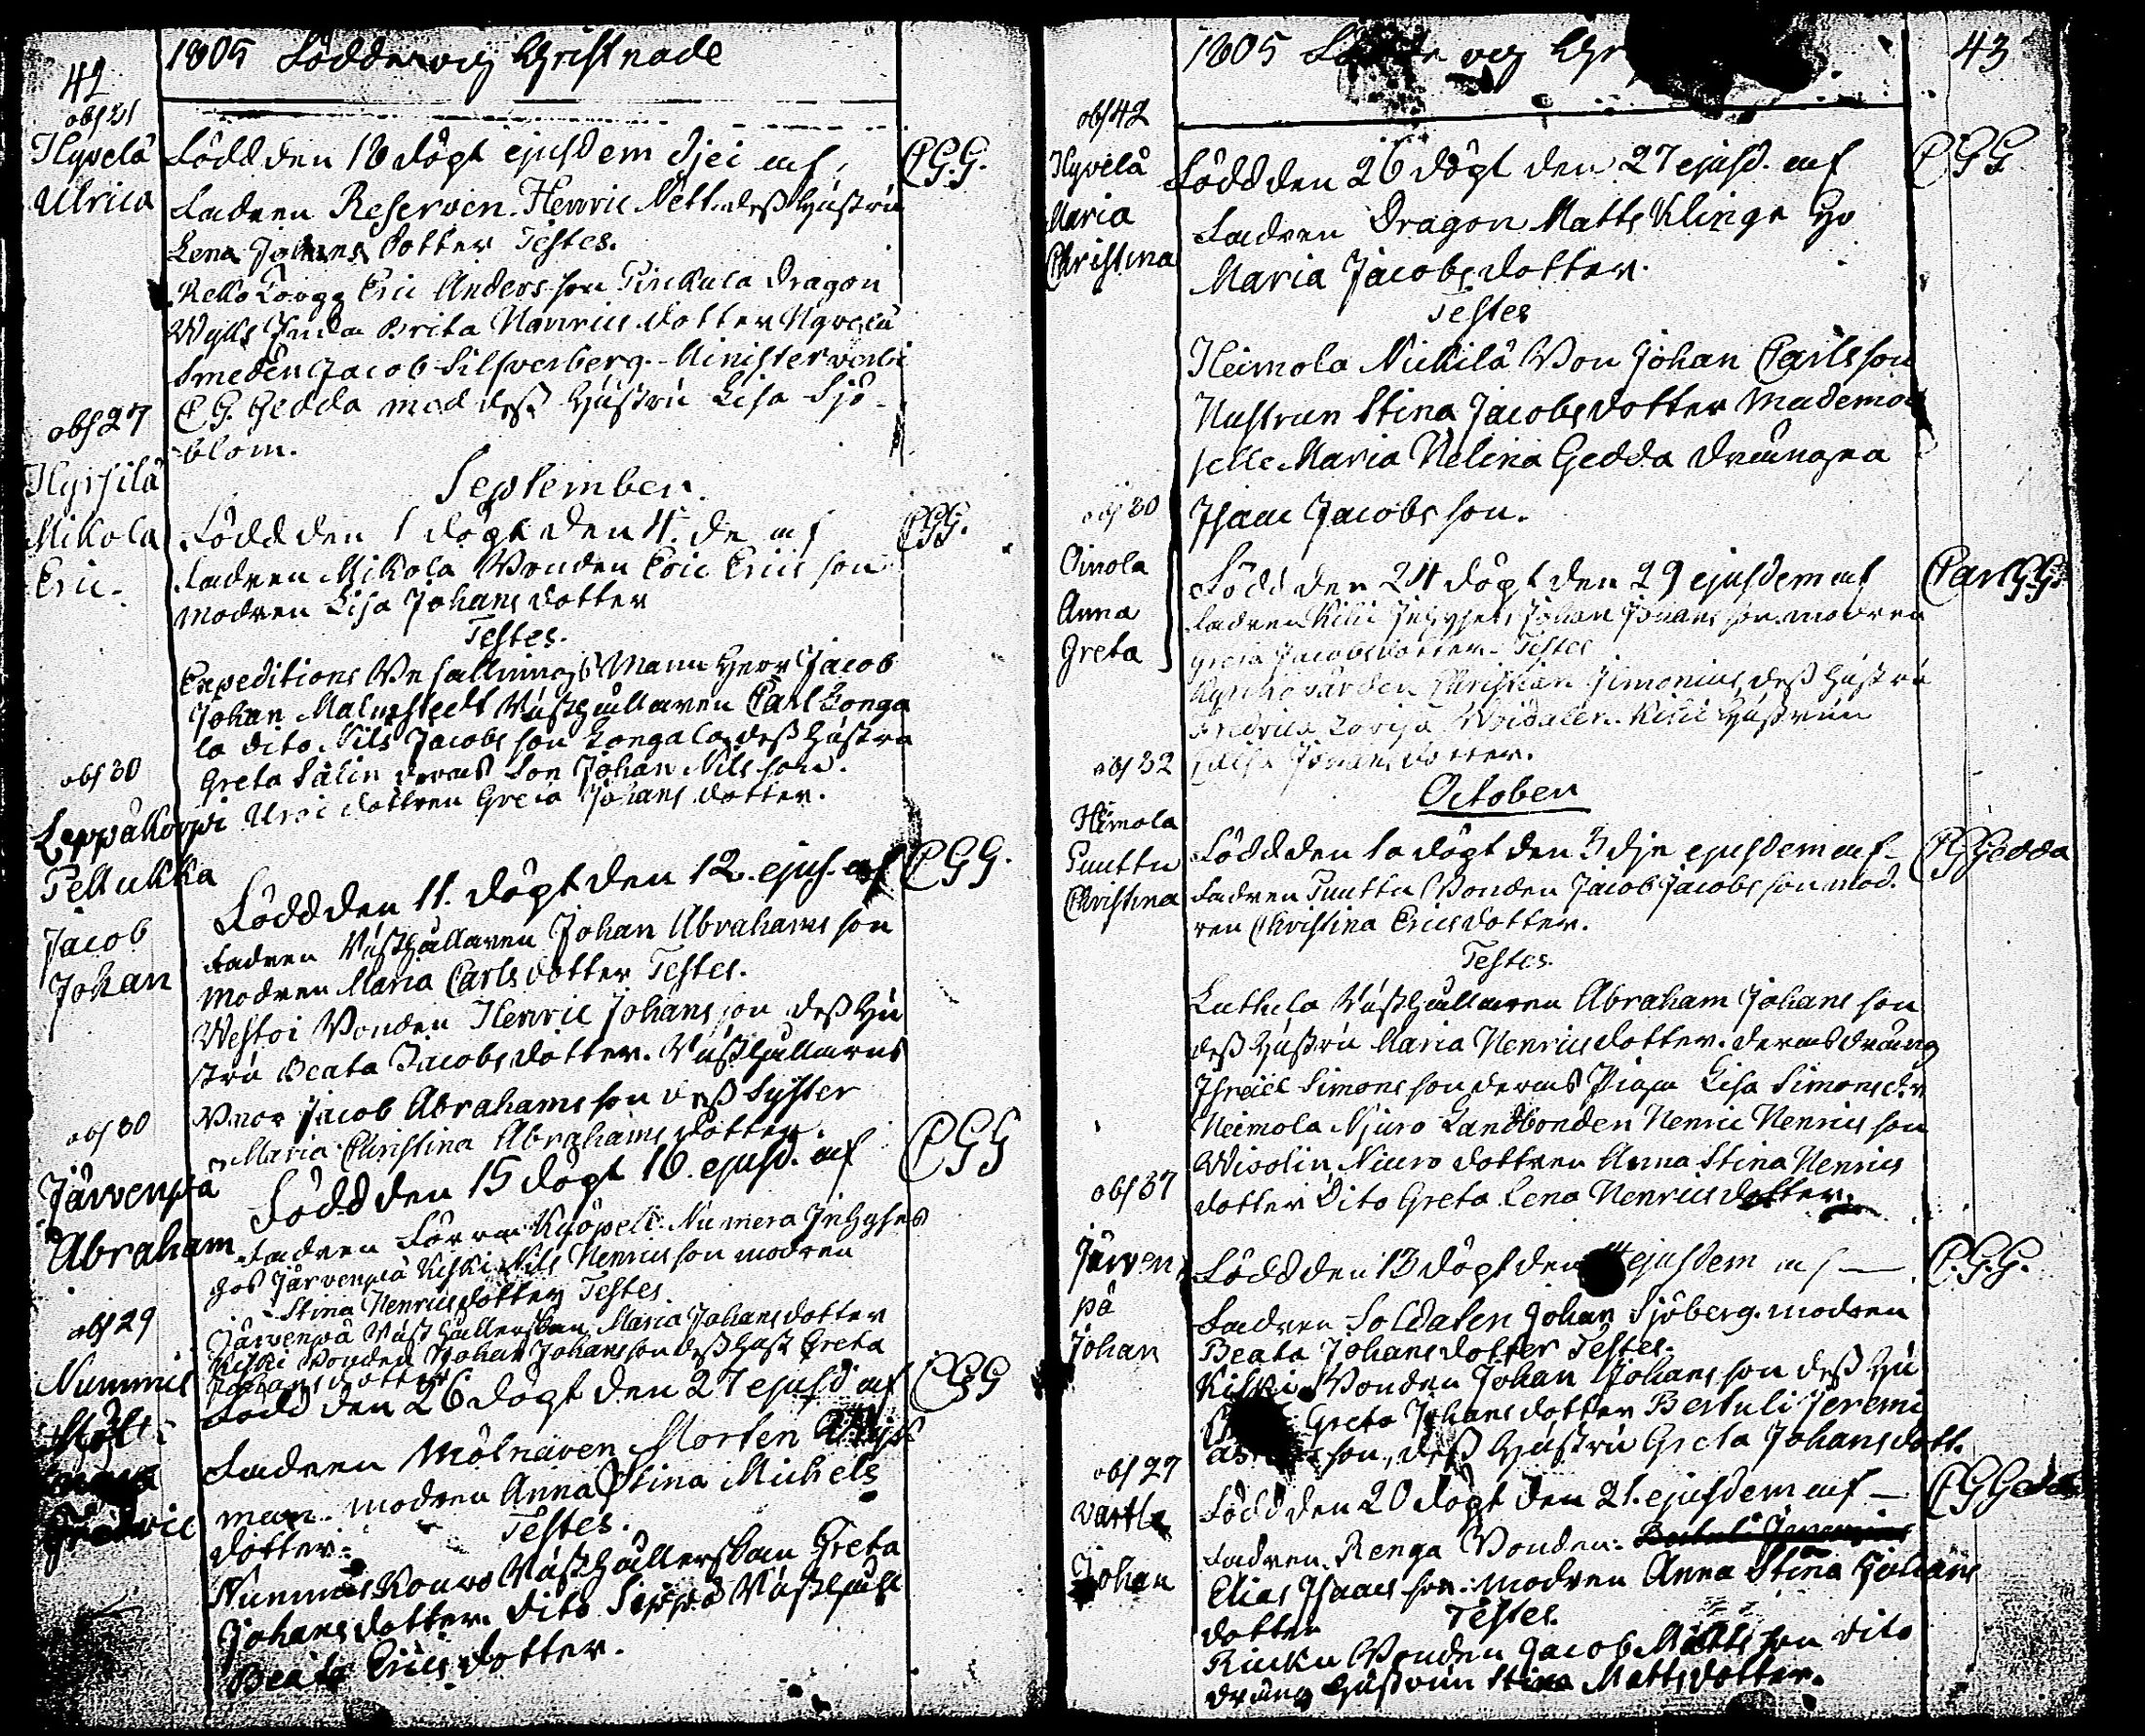 42
1805 Födde och Christnade
obs 31
Hyvelä
Ulrica
Född den 18 döpt ejusdem djei af
fadren Reserven Henric Nett. dess hustru
Lena Johans dotter Testes.
Eric Anders son Pirckala Dragon
Brita Henrics dotter Hyvelä
Smeden Jacob Silfverberg. Minister verbi
C G. Gedda med dess hustru Lisa Sjö-
blom.
C.G.G.
September.
obs 27
Hyrsilä
Mikola
Eric.
Född den 1 döpt den 4. de af
fadren Mikola Bonden Eric Erics son
modren Lisa Johans dotter
Testes.
Expeditions Befallnings Mann Herr Jacob
Johan Malmstedt Rusthållaren Carl Longa
la dito Nils Jacobs son Longala dess hustru
Greta Salin deras Son Johan Nils son.
dottren Greta Johans dotter.
CGG.
obs 30
Leppäkorpi
Pellukka
Jacob
Johan
Född den 11. döpt den 12. ejus. af
fadren Rusthållaren Johan Abrahams son
modren Maria Carls dotter Testes.
Westoi Bonden Henric Johans son dess hu
stru Beata Jacobs dotter. Rusthållarens
Bror Jacob Abrahams son dess Syster
Maria Christina Abrahams dotter.
CGG.
obs 30
Järvenpä
Abraham
Född den 15 döpt 16. ejusd. af
fadren Förra Inhyses
hos Järvenpä Kiski Nils Henrics son modren
Stina Henrics dotter Testes.
Järvenpä Rusthållerskan Maria Johans dotter
Kiski Bonden Johan Johans son dess hust Greta
Johans dotter
CGG
obs 29
Nummis
Fredric
Född den 26 döpt den 27 ejusd af
fadren Mölnaren Morten
man. modren Anna Stina Michels
dotter. Testes.
Nummis Kouvo Rusthållerskan Greta
Johans dotter. dito Seppä Rusthåll
Beata Erics dotter.
CGG
1805 Födde och Chr
43
obs 42
Hyvelä
Maria
Christina
Född den 26 döpt den 27 ejusd. af
fadren Dragon Matts Klinga Hu
Maria Jacobs dotter.
Testes
Heimola Nickilä Bon Johan Carls son
Hustrun Stina Jacobs dotter Mademoi
selle Maria Helena Gedda drängen
Isaac Jacobs son.
CGG
obs 30
Oinola
Anna
Greta
Född den 24 döpt den 29 ejusdem af
fadren Kiski Inhyses Johan Johans son modren
Greta Jacobs dotter. Testes
Christian Simonius dess hustru
Fredrica Lovisa Kiski Hustrun
Caisa Johans dotter.
Carl G.G.
October
obs 32
Heimola
Puuttu
Christina
Född den 1a döpt den 3 dje ejusdem af
fadren Puuttu Bonden Jacob Jacobs son mod.
ren Christina Erics dotter.
Testes.
Luthela Rusthållaren Abraham Johans son
dess hustru Maria Henrics dotter. deras dräng
Israel Simons son deras Piga Lisa Simons dr
Heimola Niuro Landbonden Henric Henrics son
Wisolin Niuro dottren Anna Stina Henrics
dotter Dito Greta Lena Henrics dotter.
CGGedda
obs 37
Järven
pä
Johan
Född den 13 döpt den 14 ejusdem af
fadren Soldaten Johan Sjöberg. modren
Beata Johans dotter Testes.
Kiski Bonden Johan Johans son dess hu
Greta Johans dotter Bertuli Jeremi
as son, dess hustru Greta Johans dott.
C.G.G.
obs 29
Vartla
Johan
Född den 20 döpt den 21. ejusdem af
fadren Renga Bonden.
Elias Isaacs son. modren Anna Stina Johans
dotter Testes.
Kucku Bonden Jacob Matts son dito
dräng Hustrun Stina Matts dotter.
CGGedda